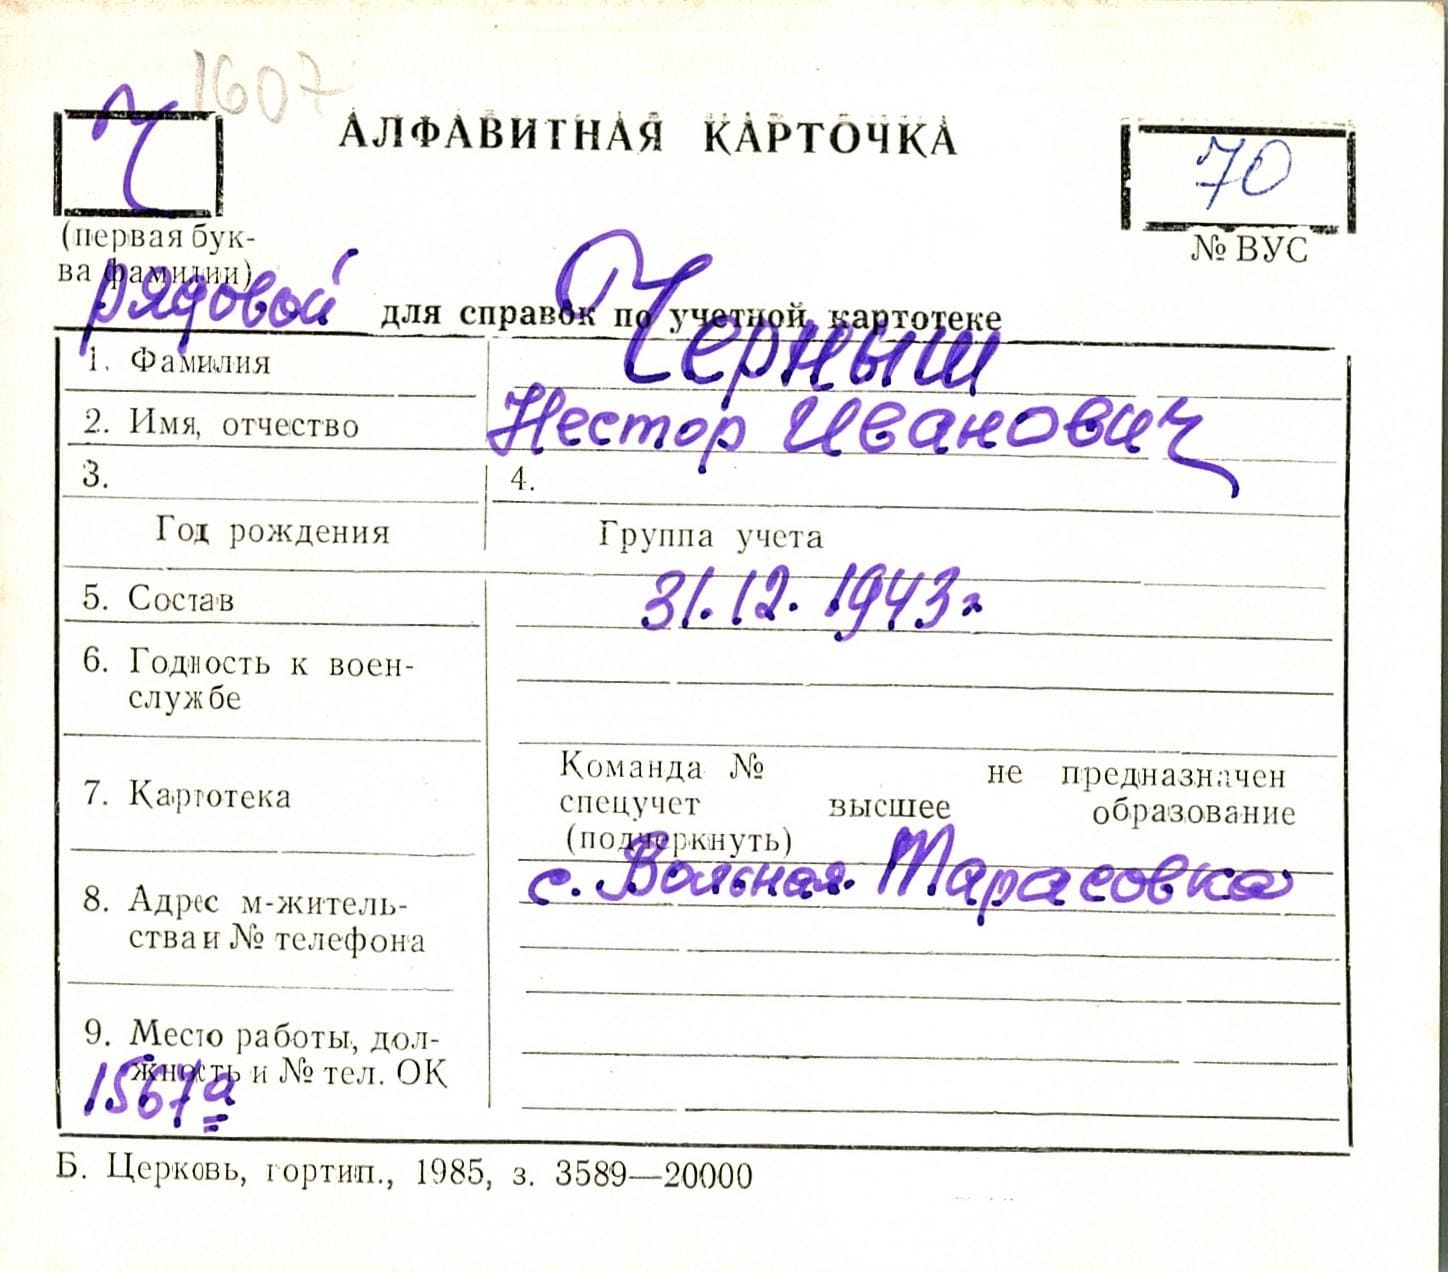 1607
Ч
АЛФАВИТНАЯ КАРТОЧКА
70
(первая бук-
ва фамилии)
№ ВУС
рядовой для справок по учетной картотеке
1. Фамилия Черныш
2. Имя, отчество Нестор Иванович
3. 4.
Год рождения Группа учета
5. Состав 31.12.1943г
6. Годность к воен-
службе
7. Картотека
Команда № не предназначен
спецучет высшее образование
(подчеркнуть)
8. Адрес м-житель-
ства и № телефона
с. Вольная Тарасовка
9. Место работы, дол-
жность и № тел. ОК
1567а
Б. Церковь, гортип., 1985, з. 3589—20000